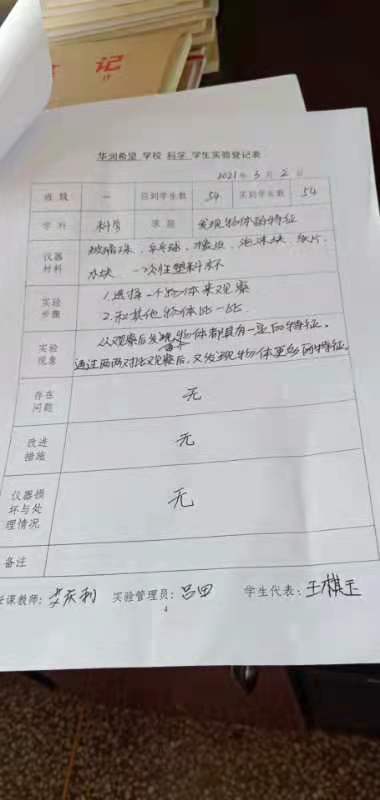 记
华润希望 学校 科学 学生实验登记表
2021年3月2日
班级 一 应到学生数 54 实到学生数 54
学科 科学 课题 发现物体的特征
仪器材料 玻璃珠、乒乓球、橡皮、泡沫块、纸片、
木块、一次性塑料杯
实验步骤 1.选择一个物体来观察
2.和其他物体比一比
实验现象 从观察后发现每个物体都具有一些的特征。
通过两两对比观察后,又发现物体更多的特征。
存在问题 无
改进措施 无
仪器损坏与处理情况 无
备注
授课教师:李庆利 实验管理员:吕田 学生代表:王棋玉
4